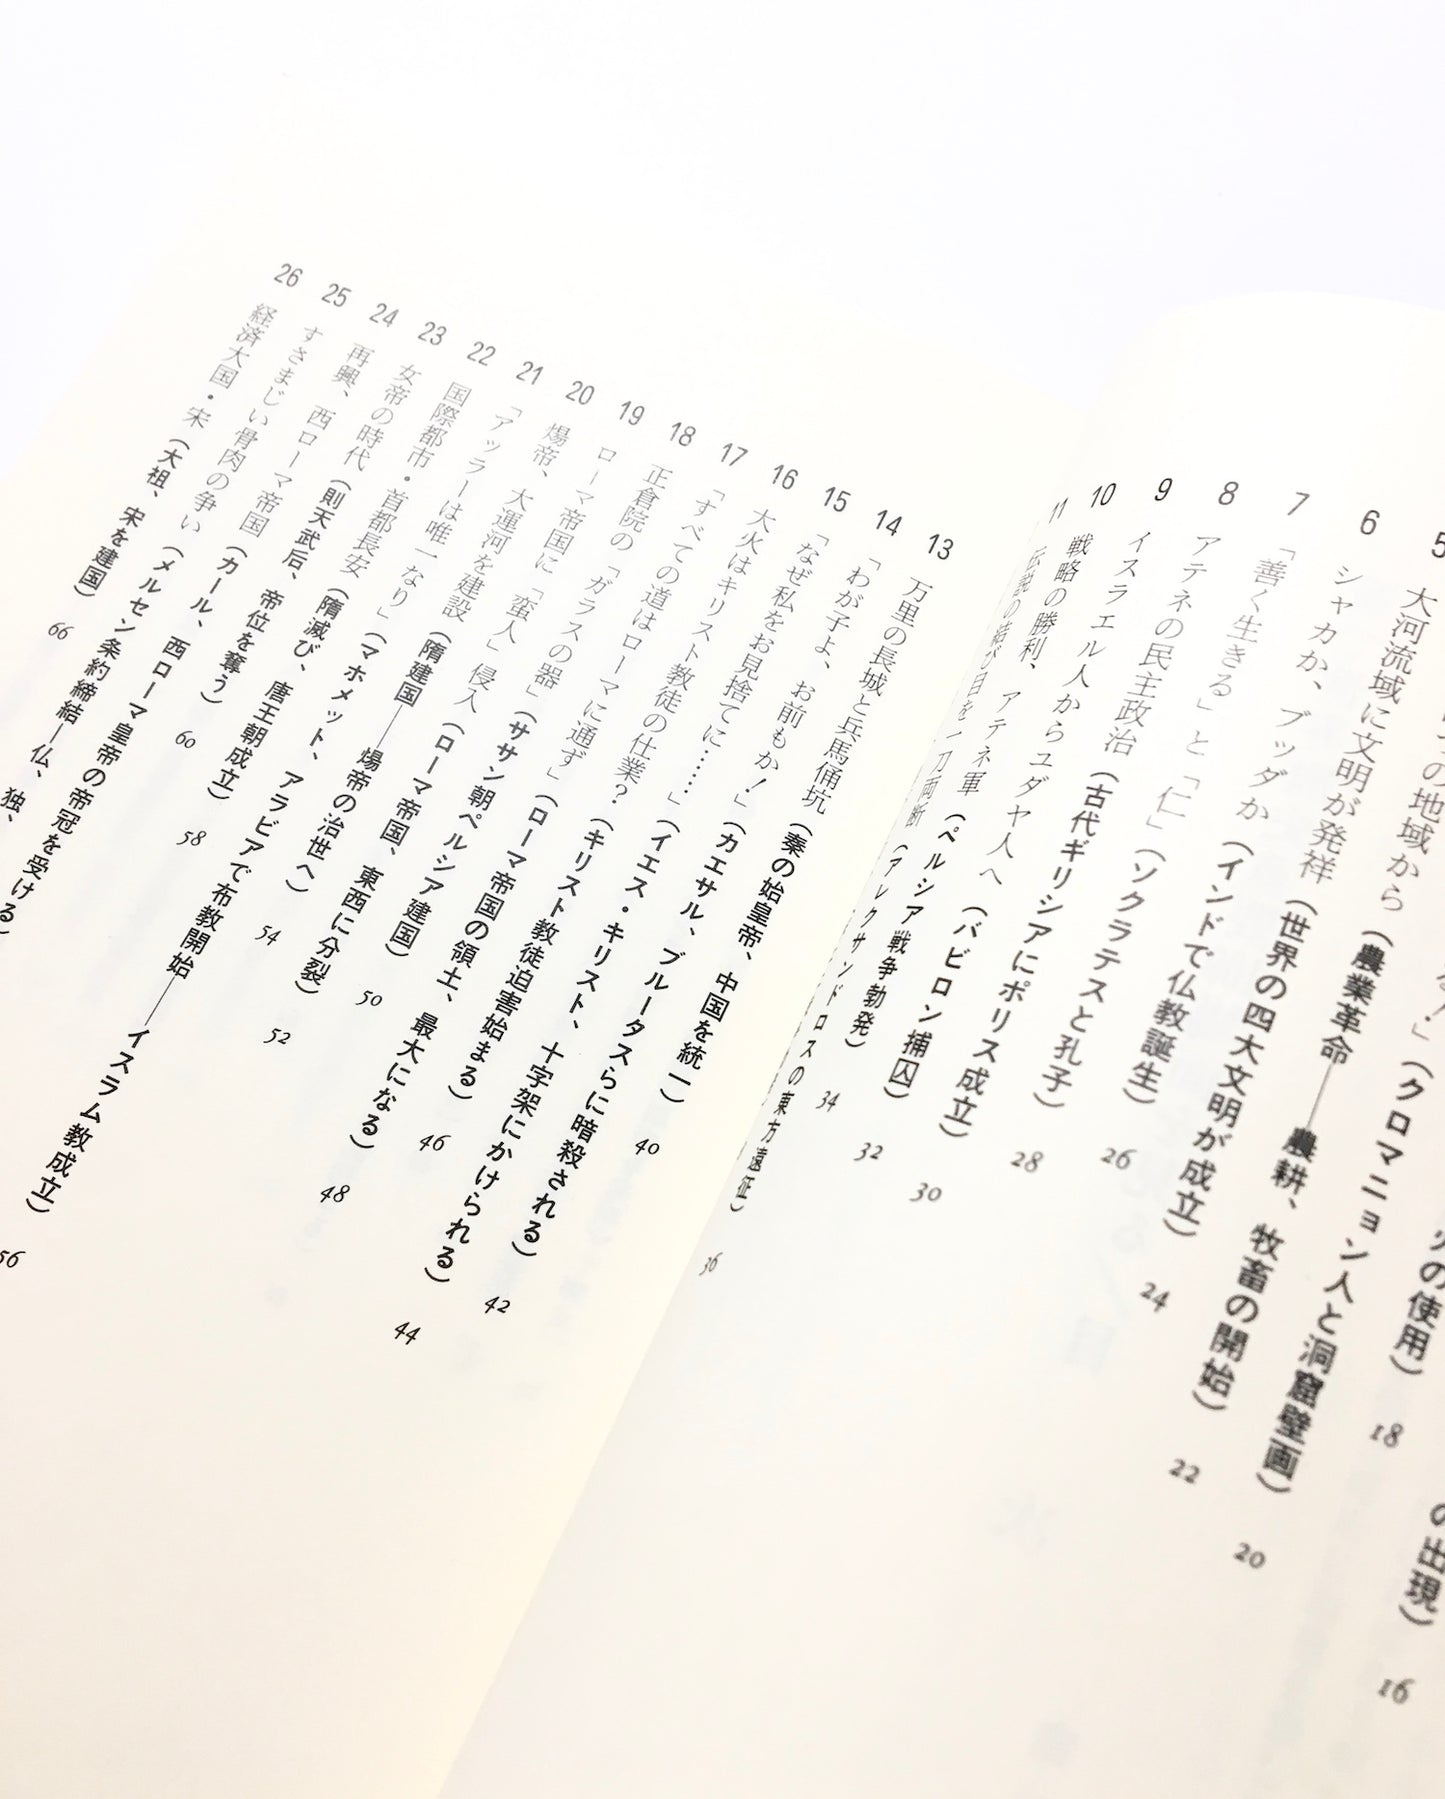 の出現） 16
ツの使用） 18
る！」（クロマニョン人と洞窟壁画） 20
つの地域から（農業革命――農耕、牧畜の開始） 22
5 大河流域に文明が発祥（世界の四大文明が成立） 24
6 シャカか、ブッダか（インドで仏教誕生） 26
7 「善く生きる」と「仁」（ソクラテスと孔子） 28
8 アテネの民主政治（古代ギリシアにポリス成立） 30
9 イスラエル人からユダヤ人へ（バビロン捕囚） 32
10 戦略の勝利、アテネ軍（ペルシア戦争勃発） 34
11 伝説の結び目を一刀両断（アレクサンドロスの東方遠征） 36
13 万里の長城と兵馬俑坑（秦の始皇帝、中国を統一） 40
14 「わが子よ、お前もか！」（カエサル、ブルータスらに暗殺される） 42
15 「なぜ私をお見捨てに……」（イエス・キリスト、十字架にかけられる） 44
16 大火はキリスト教徒の仕業？（キリスト教徒迫害始まる） 46
17 「すべての道はローマに通ず」（ローマ帝国の領土、最大になる） 48
18 正倉院の「ガラスの器」（ササン朝ペルシア建国） 50
19 ローマ帝国に「蛮人」侵入（ローマ帝国、東西に分裂） 52
20 煬帝、大運河を建設（隋建国――煬帝の治世へ） 54
21 「アッラーは唯一なり」（マホメット、アラビアで布教開始――イスラム教成立） 56
22 国際都市・首都長安（隋滅び、唐王朝成立） 58
23 女帝の時代（則天武后、帝位を奪う） 60
24 再興、西ローマ帝国（カール、西ローマ皇帝の帝冠を受ける）
25 すさまじい骨肉の争い（メルセン条約締結―仏、独、
26 経済大国・宋（大祖、宋を建国） 66